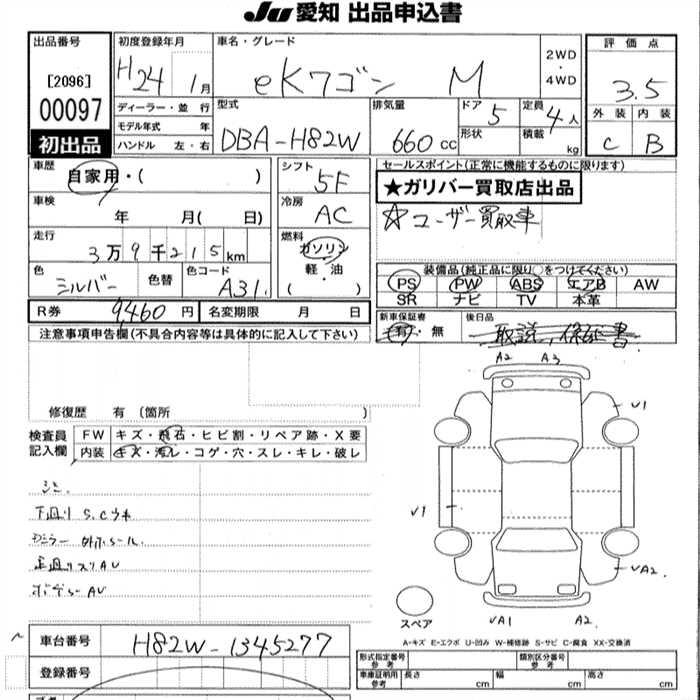 JU 愛知 出品申込書
出品番号
[2096]
00097
初出品
初度登録年月
H24 1月
ディーラー・並 行
モデル年式 年
ハンドル 左・右
車名・グレード
eKワゴン M
2WD
・
4WD
型式
DBA-H82W
排気量
660 cc
ドア 5
形状
定員 4人
積載 kg
評価点
3.5
外装 内装
C B
車歴
自家用・( )
車検
年 月( 日)
走行
3万9千215km
色
シルバー
色替
色コード
A31
シフト
5F
冷房
AC
燃料
ガソリン
・
軽・油
( )
セールスポイント(正常に機能するものに限ります)
★ガリバー買取店出品
☆ユーザー買取車
装備品(純正品に限り○をつけてください)
PS PW ABS エアB AW
SR ナビ TV 本革
R券 9,460 円
名変期限 月 日
新車保証書
有・無
後日品
取説、保証書
注意事項申告欄(不具合内容等は具体的に記入して下さい)
修復歴 有(箇所 )
検査員
記入欄
FW キズ・飛石・ヒビ割・リペア跡・X要
内装 キズ・汚レ・コゲ・穴・スレ・キレ・破レ
シミ
下廻り S.C
ミラー
足廻リスリ AU
ボデー AU
A2 A3
U1
U1
UA2.
UA1 A2.
スペア
A-キズ E-エクボ U-凹み W-補修跡 S-サビ C-腐食 XX-交換済
車台番号
H82W-1345277
登録番号
型式指定番号
参考
類別区分番号
参考
車庫証明用
参考
長さ cm
幅 cm
高さ cm